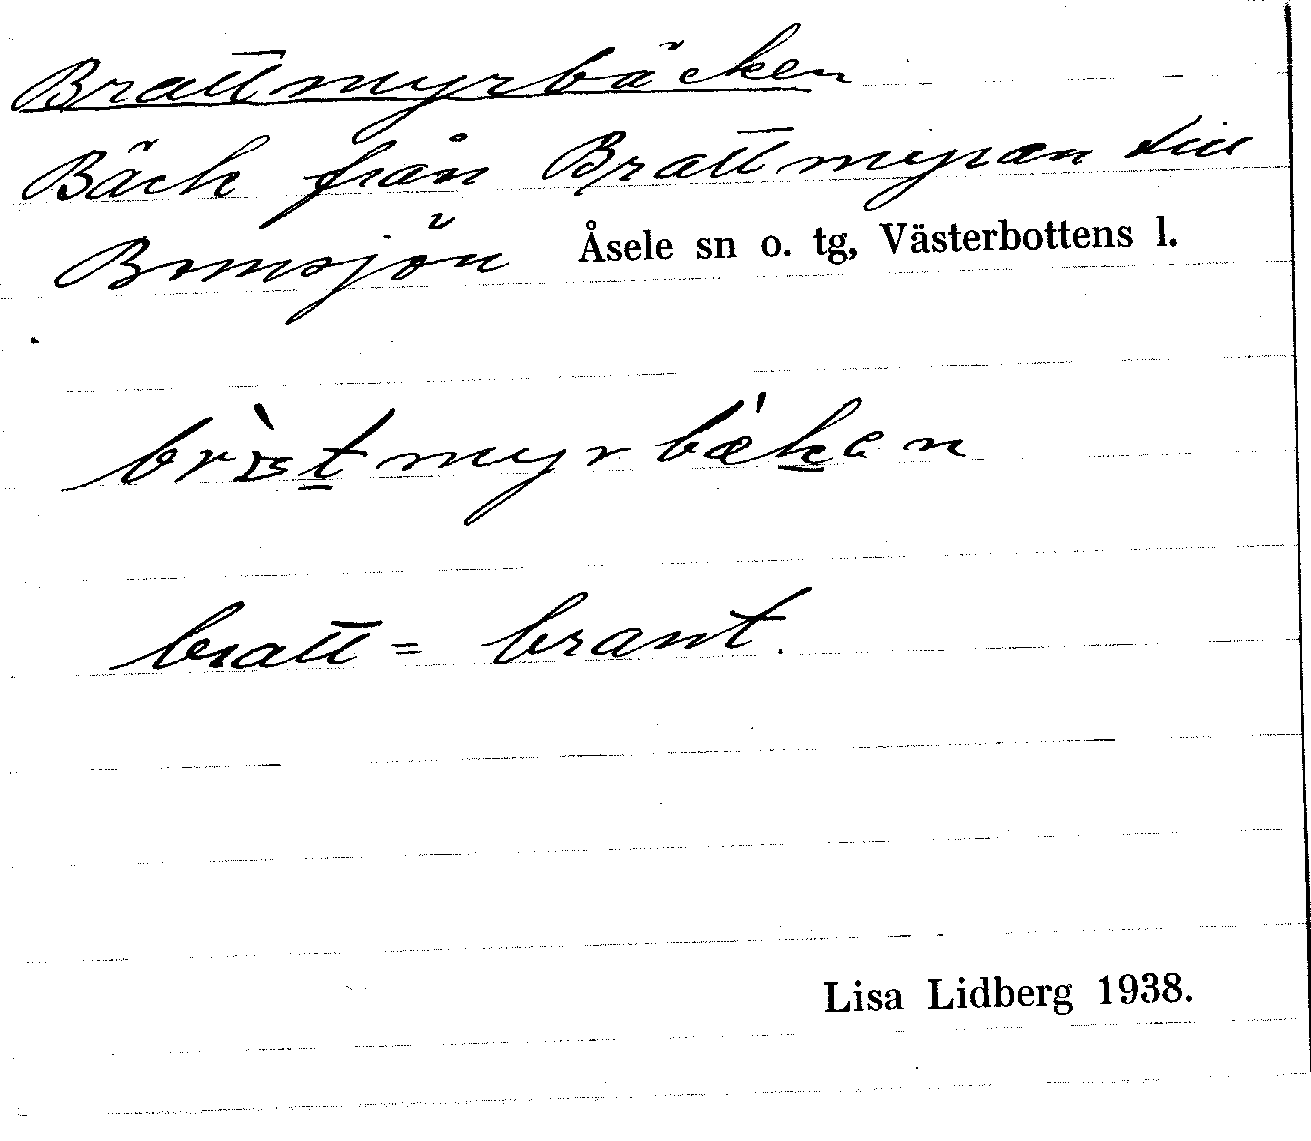 Brattmyrbäcken
Bäck från Brattmyran till
Bomsjön Åsele sn o. tg, Västerbottens l.
bratt = brant.
Lisa Lidberg 1938.